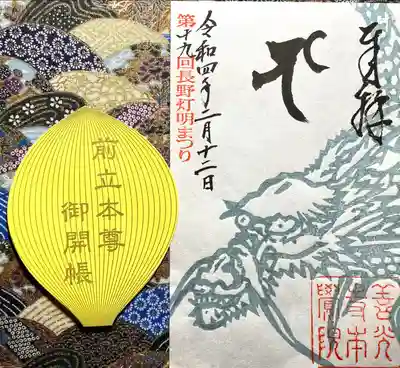 前立本尊
御開帳
奉拝
令和四年二月十二日
第十九回長野灯明まつり
善光
寺本
覺院